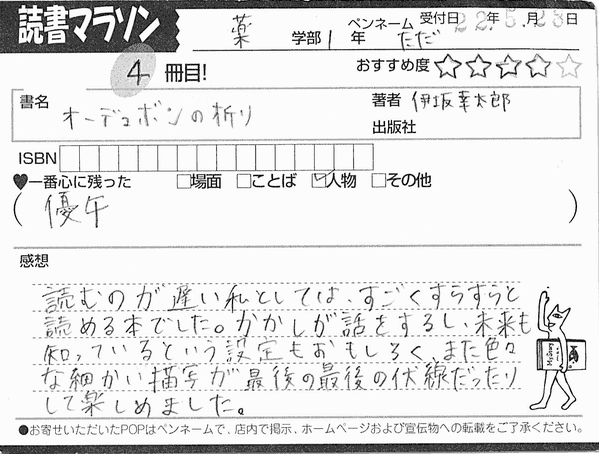 読書マラソン
薬 学部 1 年 ペンネーム ただ 受付日 22年 5.月 28日
4 冊目! おすすめ度 ☆☆☆☆☆
書名 オーデュボンの祈り 著者 伊坂幸太郎
出版社
ISBN
♥一番心に残った □場面 □ことば ☑人物 □その他
( 優午 )
感想
読むのが遅い私としては、すごくすらすらと
読める本でした。かかしが話をするし、未来も
知っているという設定もおもしろく、また色々
な細かい描写が最後の最後の伏線だったり
して楽しめました。
●お寄せいただいたPOPはペンネームで、店内で掲示、ホームページおよび宣伝物への転載をご了承ください。